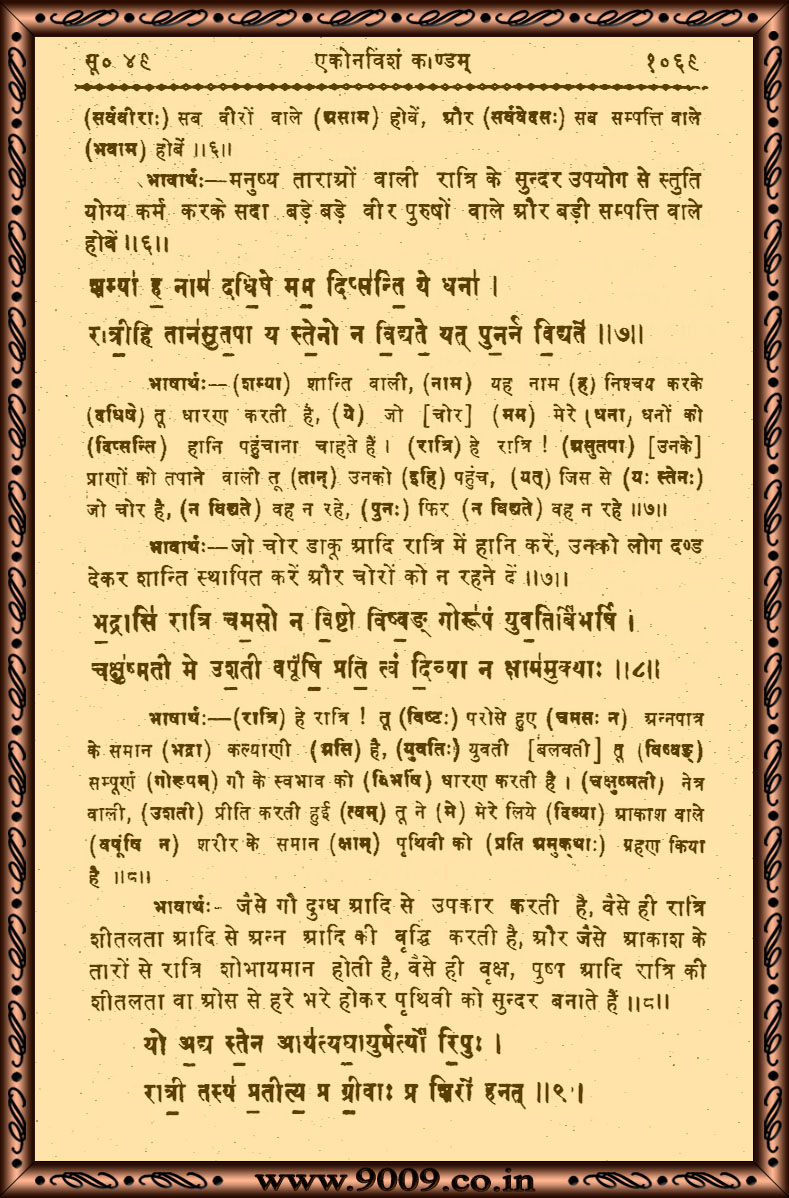 सू० ४९ एकोनविंशं काण्डम् १०६९
(सर्ववीराः) सब वीरों वाले (असाम) होवें, और (सर्ववेदसः) सब सम्पत्ति वाले
(भवाम) होवें ॥६॥
भावार्थः—मनुष्य ताराओं वाली रात्रि के सुन्दर उपयोग से स्तुति
योग्य कर्म करके सदा बड़े बड़े वीर पुरुषों वाले और बड़ी सम्पत्ति वाले
होवें ॥६॥
शम्या॑ ह॒ नाम॑ दधि॒षे मम॒ दिप्स॑न्ति॒ ये धना॑ ।
रात्री॒हि तान॑सुत॒पा य स्ते॒नो न वि॒द्यते॒ यत् पुन॒र्न वि॒द्यते॑ ॥७॥
भाषार्थः—(शम्या) शान्ति वाली, (नाम) यह नाम (ह) निश्चय करके
(दधिषे) तू धारण करती है, (ये) जो [चोर] (मम) मेरे (धना, धनों को
(दिप्सन्ति) हानि पहुंचाना चाहते हैं । (रात्रि) हे रात्रि ! (असुतपा) [उनके]
प्राणों को तपाने वाली तू (तान्) उनको (इहि) पहुंच, (यत्) जिस से (यः स्तेनः)
जो चोर है, (न विद्यते) वह न रहे, (पुनः) फिर (न विद्यते) वह न रहे ॥७॥
भावार्थः—जो चोर डाकू आदि रात्रि में हानि करें, उनको लोग दण्ड
देकर शान्ति स्थापित करें और चोरों को न रहने दें ॥७॥
भ॒द्रासि॑ रात्रि चम॒सो न वि॒ष्टो विष्व॒ङ् गोरू॑पं युव॒तिर्बि॑भर्षि ।
चक्षु॑ष्मती मे उश॒ती वपूं॑षि॒ प्रति॒ त्वं दि॒व्या न क्षाम॑मुक्थाः ॥८॥
भाषार्थः—(रात्रि) हे रात्रि ! तू (विष्टः) परोसे हुए (चमसः न) अन्नपात्र
के समान (भद्रा) कल्याणी (असि) है, (युवतिः) युवती [बलवती] तू (विष्वङ्)
सम्पूर्ण (गोरूपम्) गौ के स्वभाव को (बिभर्षि) धारण करती है । (चक्षुष्मती) नेत्र
वाली, (उशती) प्रीति करती हुई (त्वम्) तू ने (मे) मेरे लिये (दिव्या) आकाश वाले
(वपूंषि न) शरीर के समान (क्षाम्) पृथिवी को (प्रति अमुक्थाः) ग्रहण किया
है ॥८॥
भावार्थः- जैसे गौ दुग्ध आदि से उपकार करती है, वैसे ही रात्रि
शीतलता आदि से अन्न आदि की वृद्धि करती है, और जैसे आकाश के
तारों से रात्रि शोभायमान होती है, वैसे ही वृक्ष, पुष्प आदि रात्रि की
शीतलता वा ओस से हरे भरे होकर पृथिवी को सुन्दर बनाते हैं ॥८॥
यो अ॒द्य स्ते॒न आय॑त्यघा॒युर्मर्त्यो॑ रि॒पुः ।
रात्री॒ तस्य॑ प्र॒तीत्य॒ प्र ग्री॒वाः प्र शिरो॑ हनत् ॥९॥
www.9009.co.in